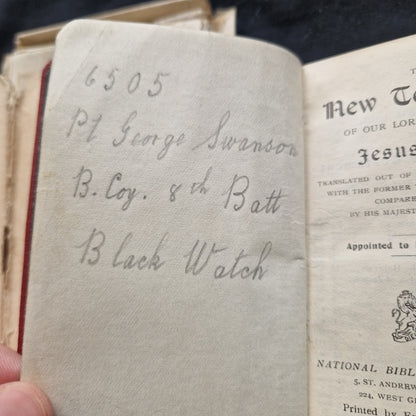 6505
Pt George Swanson
B. Coy. 8th Batt
Black Watch
New Te
OF OUR LOR
Jesus
TRANSLATED OUT OF
WITH THE FORMER
COMPARE
BY HIS MAJEST
Appointed to
NATIONAL BIBL
5, ST. ANDREW
224, WEST G
Printed by